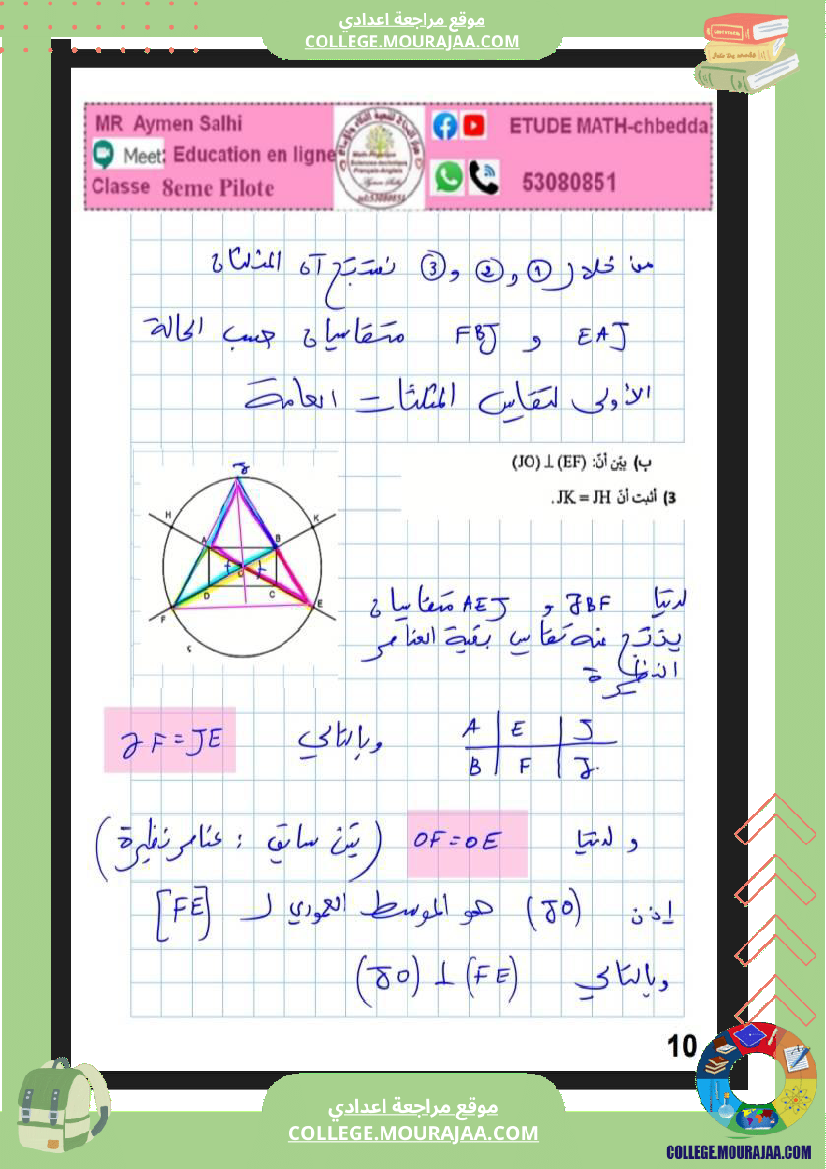 موقع مراجعة اعدادي
COLLEGE.MOURAJAA.COM
MR Aymen Salhi
Meet: Education en ligne
Classe 8eme Pilote
ETUDE MATH-chbedda
53080851
من خلال ① و ② و ③ نستنتج أن المثلثان
EAJ و FBJ متقاسيان حسب الحالة
الأولى لتقايس المثلثات العامة
ب) بيّن أنّ: (EF) ⊥ (JO)
3) أثبت أنّ JK = JH.
J
H
K
A
B
O
D
C
F
E
لدينا JBF و AEJ متقايسان
ينتج عنه تقايس بقية العناصر
النظيرة
A | E | J
B | F | J
وبالتالي JF = JE
و لدينا OF = OE (بيّن سابق : عناصر نظيرة)
إذن (JO) هو الموسط العمودي لـ [FE]
وبالتالي (FE) ⊥ (JO)
10
موقع مراجعة اعدادي
COLLEGE.MOURAJAA.COM
COLLEGE.MOURAJAA.COM